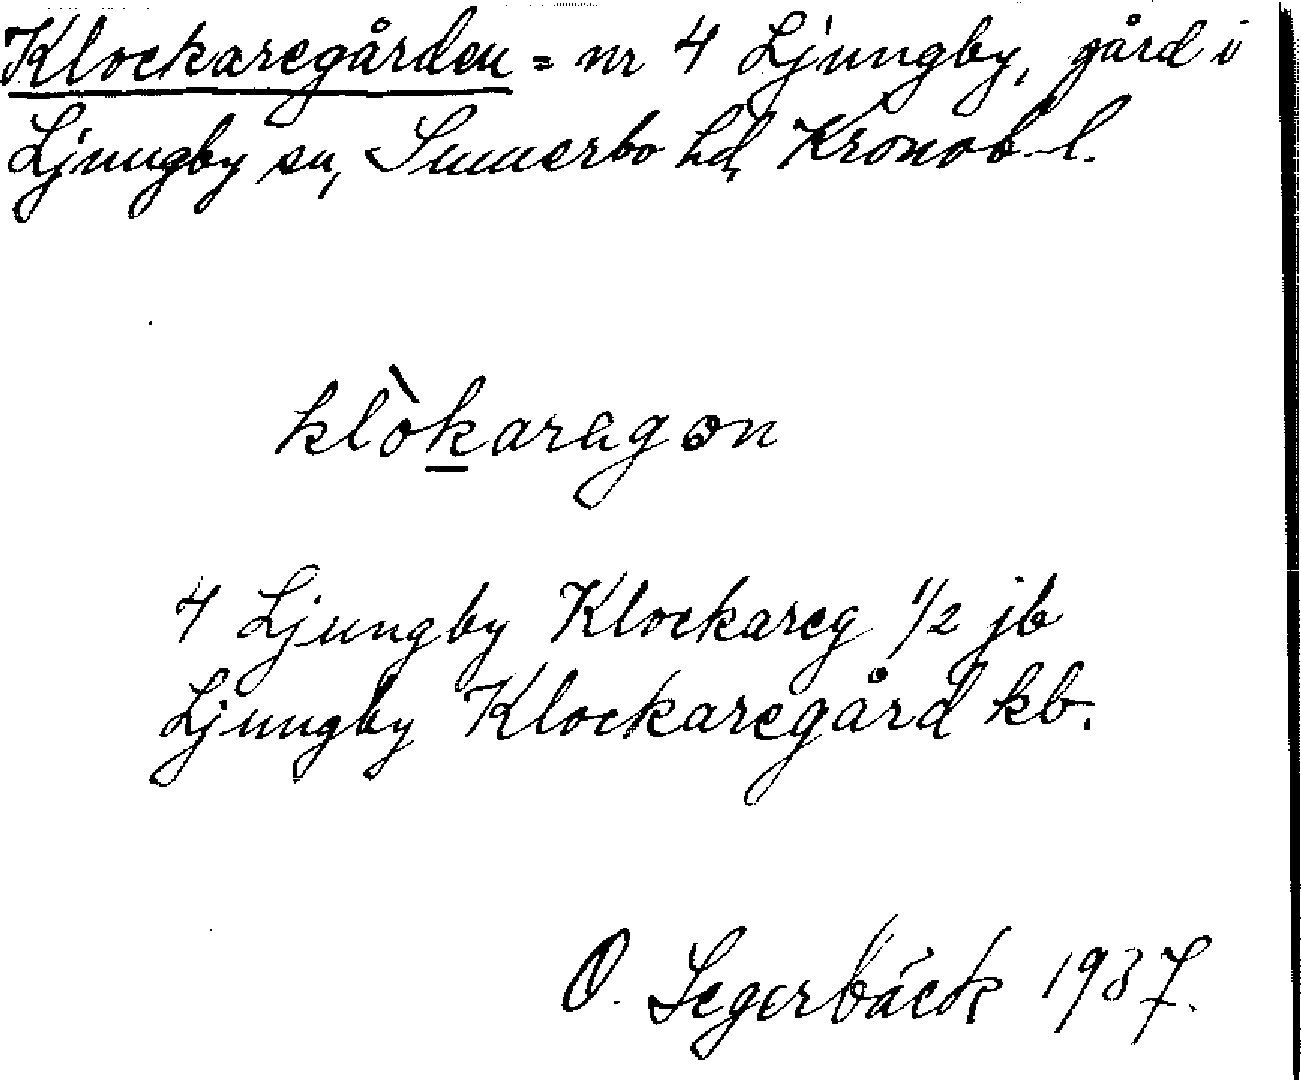 Klockaregården = nr 4 Ljungby, gård i
Ljungby sn, Sunnerbo hd, Kronob. l.
klòkaragɔn
4 Ljungby Klockareg 1/2 jb
Ljungby Klockaregård kb.
O. Segerbäck 1937.